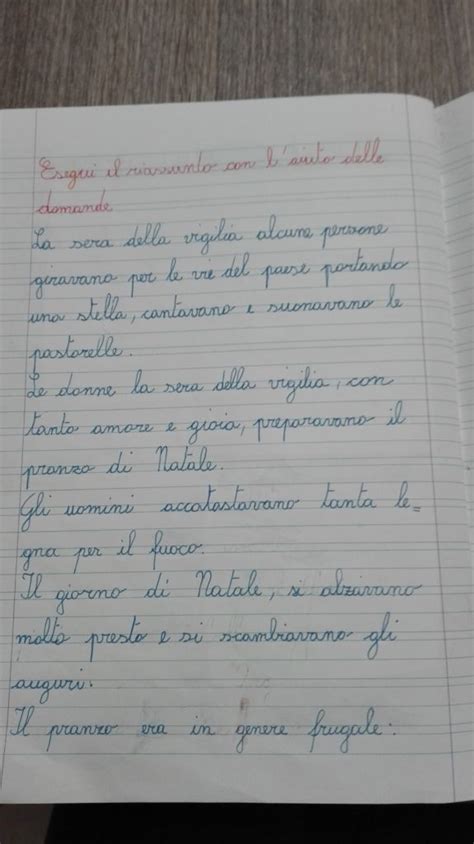 Esegui il riassunto con l'aiuto delle
domande
La sera della vigilia alcune persone
giravano per le vie del paese portando
una stella, cantavano e suonavano le
pastorelle.
Le donne la sera della vigilia, con
tanto amore e gioia, preparavano il
pranzo di Natale.
Gli uomini accatastavano tanta le=
gna per il fuoco.
Il giorno di Natale, si alzavano
molto presto e si scambiavano gli
auguri.
Il pranzo era in genere frugale: